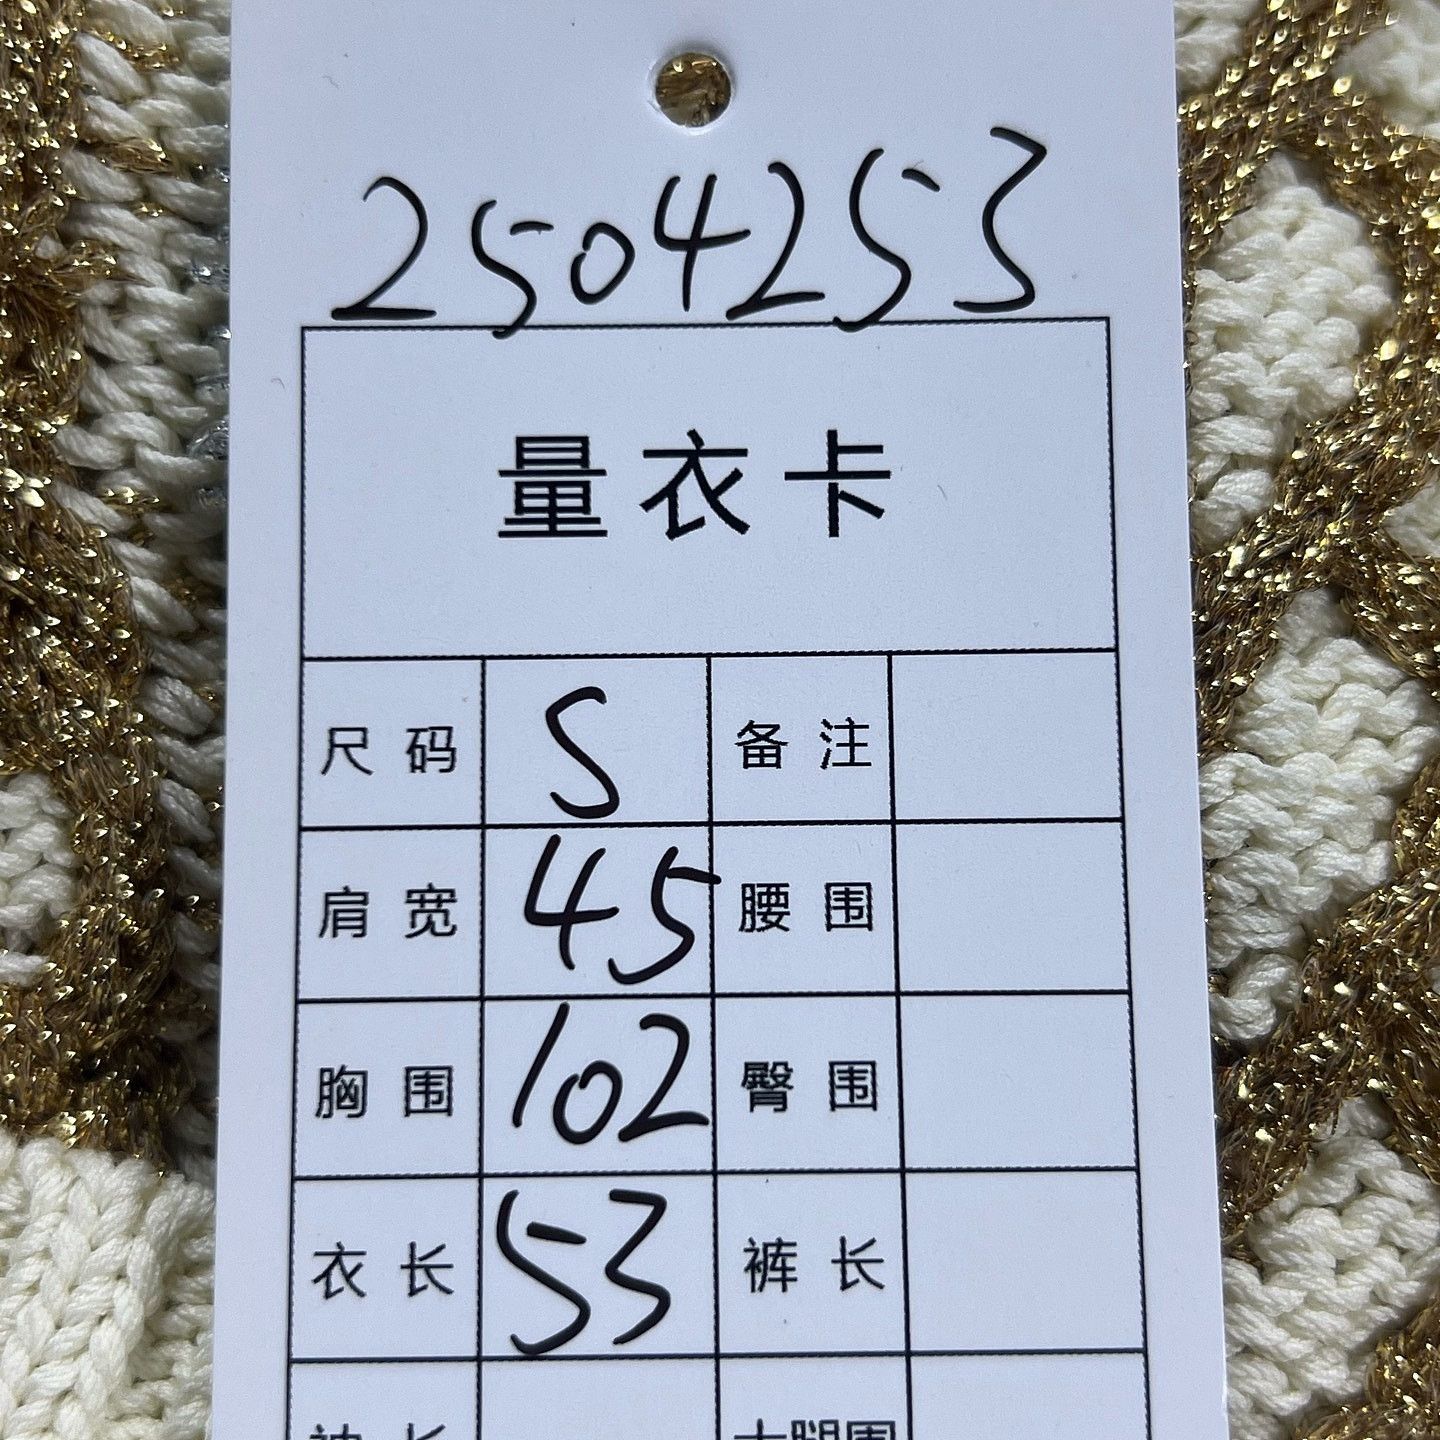 2504253
量衣卡
尺码 S 备注
肩宽 45 腰围
胸围 102 臀围
衣长 53 裤长
袖长 大腿围